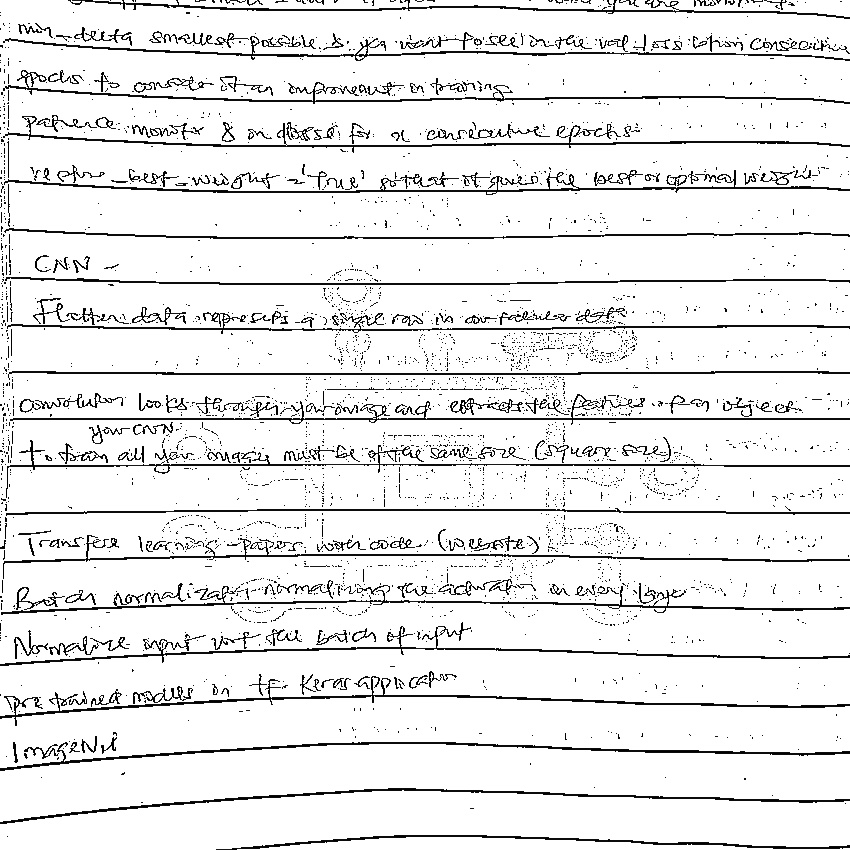 you are monitoring.
min_delta smallest possible you want to see in the val_loss consecutive
epochs to consider it an improvement in training
patience monitor for x consecutive epochs
restore_best_weight = 'True' so that it gives the best or optimal weights
CNN -
Flatten data represents a single row in our tabular data
convolution looks through your image and extracts the features of an object
your CNN
to train all your images must be of the same size (square size)
Transfere learning - papers with code (website)
Batch normalization normalizing the activation in every layer
Normalize input wrt the batch of input
pre trained models in tf. Keras application
ImageNet